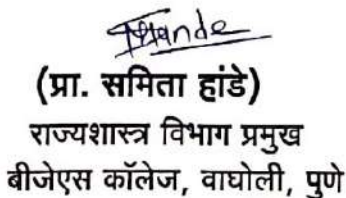 (प्रा. समिता हांडे)
राज्यशास्त्र विभाग प्रमुख
बीजेएस कॉलेज, वाघोली, पुणे